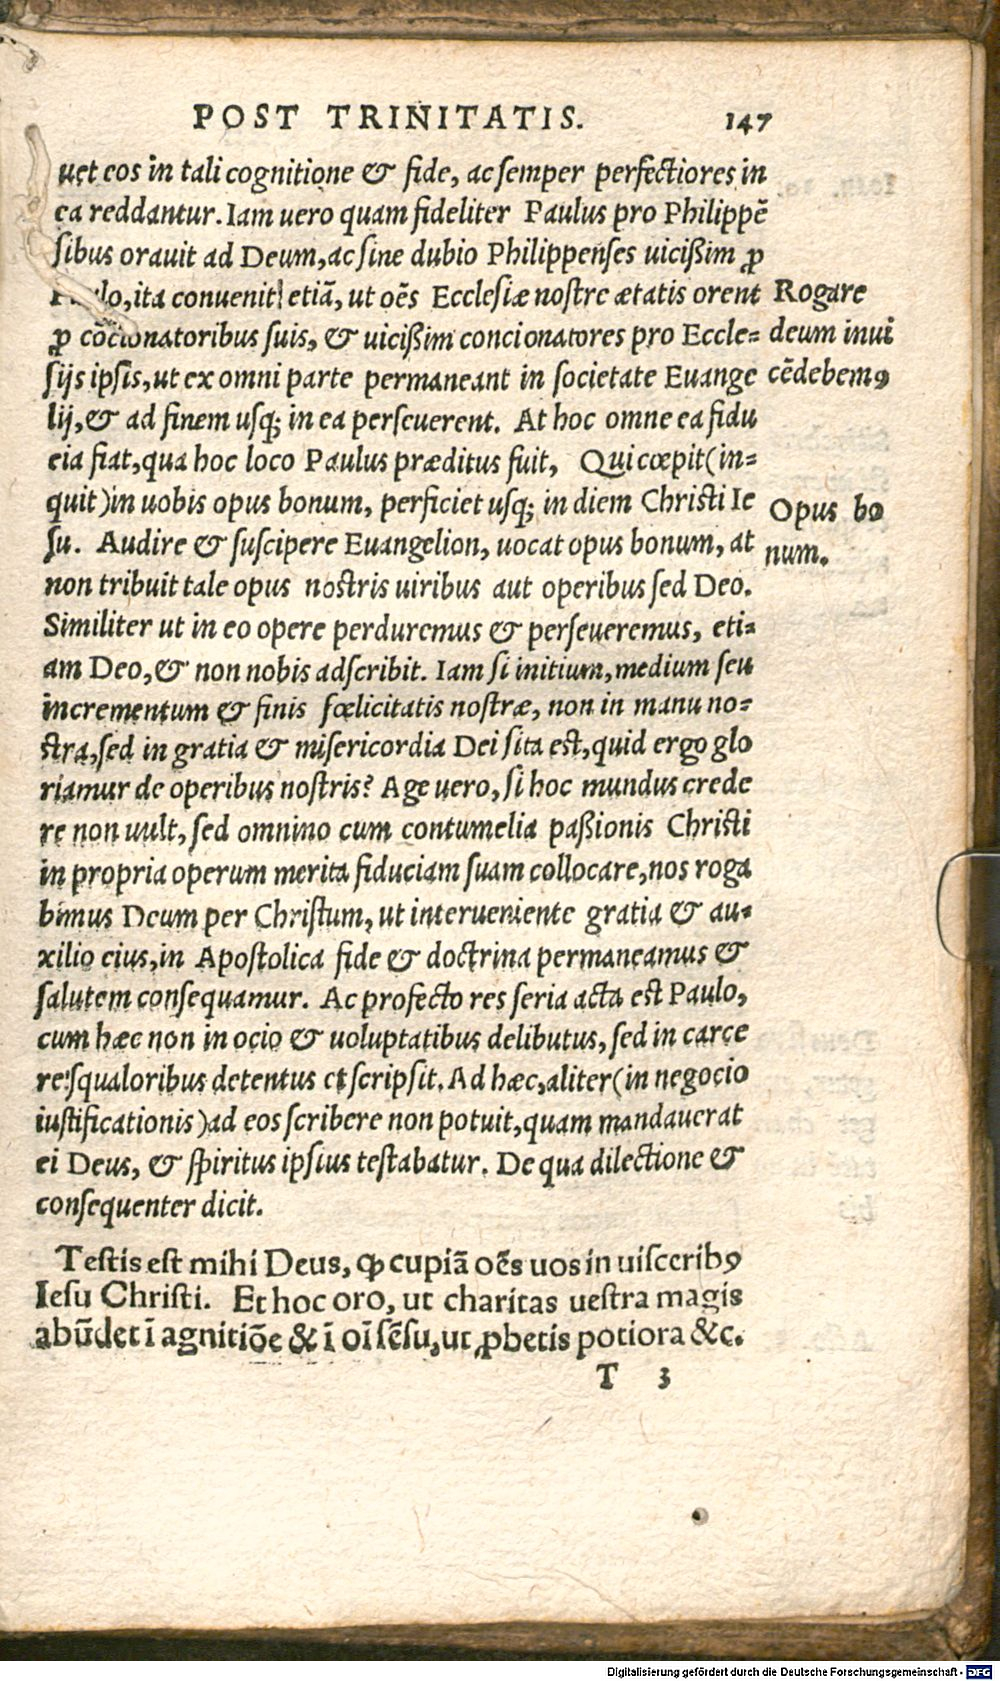 POST TRINITATIS. 147
uet eos in tali cognitione & fide, ac semper perfectiores in
ea reddantur. Iam uero quam fideliter Paulus pro Philippē
sibus orauit ad Deum, ac sine dubio Philippenses uicißim ꝓ
Paulo, ita conuenit etiā, ut oēs Ecclesiæ nostre ætatis orent
Rogare
ꝓ cōcionatoribus suis, & uicißim concionatores pro Eccle-
deum inui
sijs ipsis, ut ex omni parte permaneant in societate Euange
cē debemꝰ
lij, & ad finem usq; in ea perseuerent. At hoc omne ea fidu
cia fiat, qua hoc loco Paulus præditus fuit, Qui cœpit (in-
quit) in uobis opus bonum, perficiet usq; in diem Christi Ie
Opus bo
su. Audire & suscipere Euangelion, uocat opus bonum, at
num.
non tribuit tale opus nostris uiribus aut operibus sed Deo.
Similiter ut in eo opere perduremus & perseueremus, eti-
am Deo, & non nobis adscribit. Iam si initium, medium seu
incrementum & finis fœlicitatis nostræ, non in manu no-
stra, sed in gratia & misericordia Dei sita est, quid ergo glo
riamur de operibus nostris? Age uero, si hoc mundus crede
re non uult, sed omnino cum contumelia paßionis Christi
in propria operum merita fiduciam suam collocare, nos roga
bimus Deum per Christum, ut interueniente gratia & au-
xilio eius, in Apostolica fide & doctrina permaneamus &
salutem consequamur. Ac profecto res seria acta est Paulo,
cum hæc non in ocio & uoluptatibus delibutus, sed in carce
re squaloribus detentus et scripsit. Ad hæc, aliter (in negocio
iustificationis) ad eos scribere non potuit, quam mandauerat
ei Deus, & spiritus ipsius testabatur. De qua dilectione &
consequenter dicit.
Testis est mihi Deus, ꝙ cupiā oēs uos in uisceribꝰ
Iesu Christi. Et hoc oro, ut charitas uestra magis
abūdet ī agnitiōe & ī oī sēsu, ut ꝓbetis potiora &c.
T 3
Digitalisierung gefördert durch die Deutsche Forschungsgemeinschaft - DFG